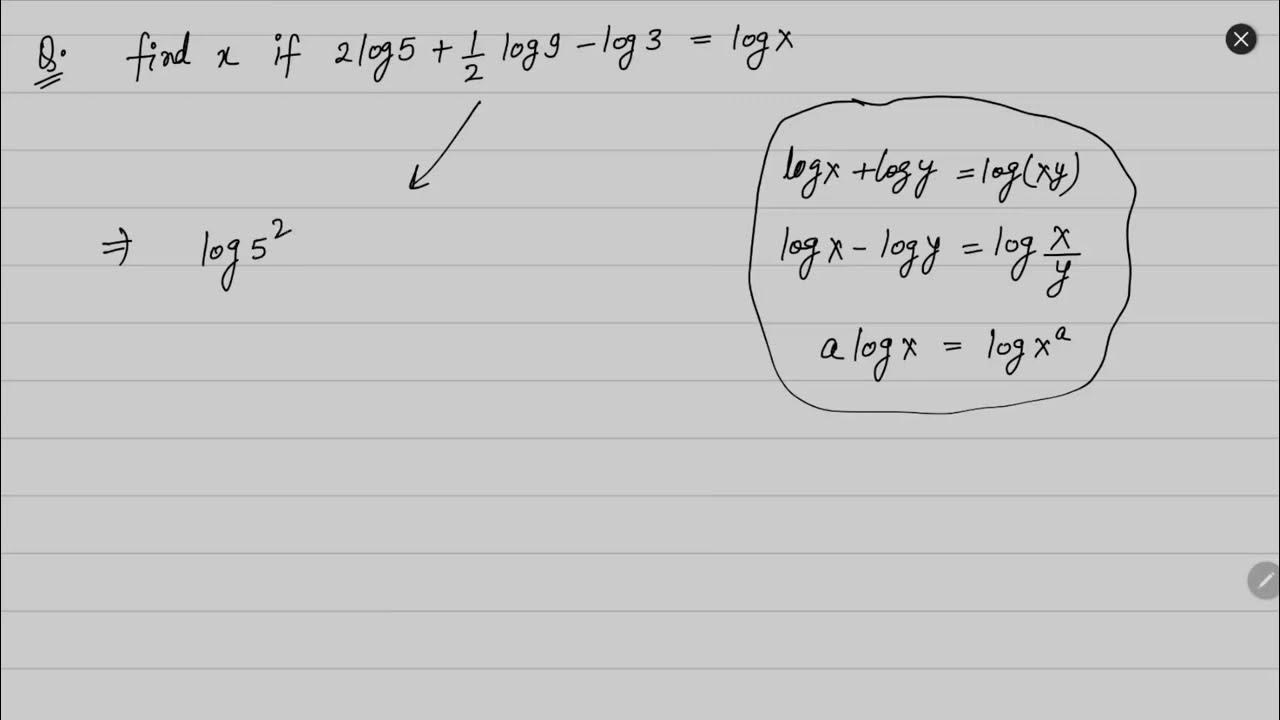 Q. find x if 2 log 5 + 1/2 log 9 - log 3 = log x
log x + log y = log(xy)
⇒ log 5²
log x - log y = log x/y
a log x = log xᵃ